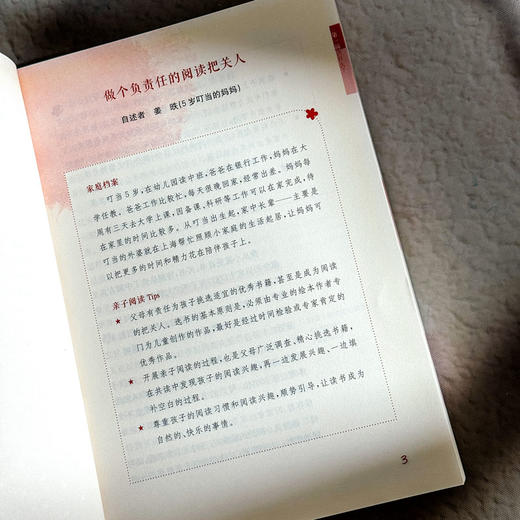 做个负责任的阅读把关人
自述者 姜 昳(5岁叮当的妈妈)
家庭档案
叮当5岁，在幼儿园读中班，爸爸在银行工作，妈妈在大
学任教。爸爸工作比较忙，每天很晚回家，经常出差。妈妈每
周有三天去大学上课，因备课、科研等工作可以在家完成，待
在家里的时间比较多。从叮当出生起，家中长辈——主要是
叮当的外婆就在上海帮忙照顾小家庭的生活起居，让妈妈可
以把更多的时间和精力花在陪伴孩子上。
亲子阅读 Tips
★ 父母有责任为孩子挑选适宜的优秀书籍，甚至是成为阅读
的把关人。选书的基本原则是，必须由专业的绘本作者专
门为儿童创作的作品，最好是经过时间检验或专家肯定的
优秀作品。
★ 开展亲子阅读的过程，也是父母广泛调查、精心挑选书籍，
在共读中发现孩子的阅读兴趣，再一边发展兴趣、一边填
补空白的过程。
★ 尊重孩子的阅读习惯和阅读兴趣，顺势引导，让读书成为
自然的、快乐的事情。
3